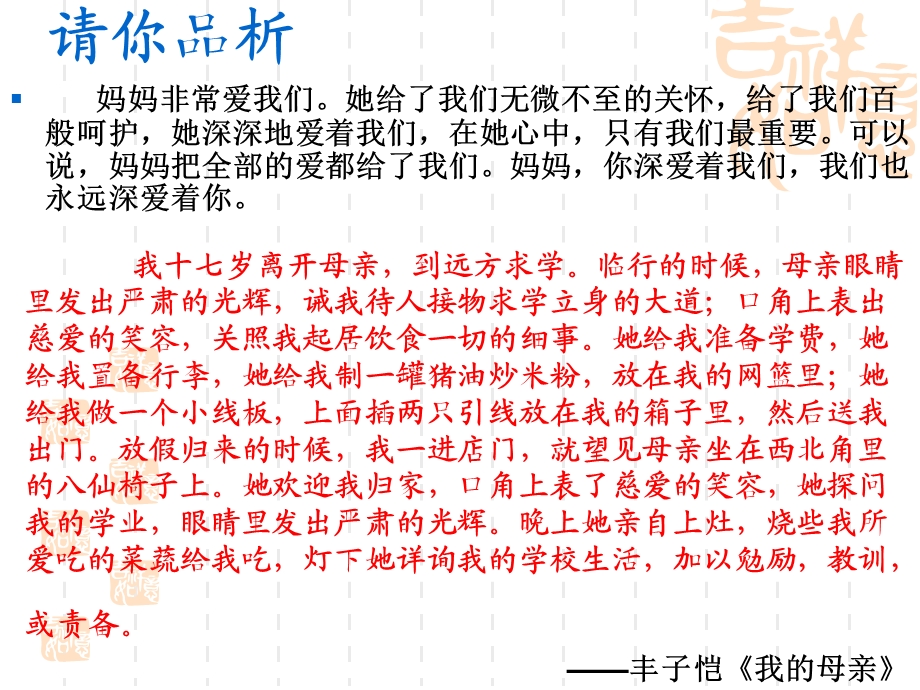 请你品析
妈妈非常爱我们。她给了我们无微不至的关怀，给了我们百
般呵护，她深深地爱着我们，在她心中，只有我们最重要。可以
说，妈妈把全部的爱都给了我们。妈妈，你深爱着我们，我们也
永远深爱着你。
我十七岁离开母亲，到远方求学。临行的时候，母亲眼睛
里发出严肃的光辉，诫我待人接物求学立身的大道；口角上表出
慈爱的笑容，关照我起居饮食一切的细事。她给我准备学费，她
给我置备行李，她给我制一罐猪油炒米粉，放在我的网篮里；她
给我做一个小线板，上面插两只引线放在我的箱子里，然后送我
出门。放假归来的时候，我一进店门，就望见母亲坐在西北角里
的八仙椅子上。她欢迎我归家，口角上表了慈爱的笑容，她探问
我的学业，眼睛里发出严肃的光辉。晚上她亲自上灶，烧些我所
爱吃的菜蔬给我吃，灯下她详询我的学校生活，加以勉励，教训，
或责备。
——丰子恺《我的母亲》